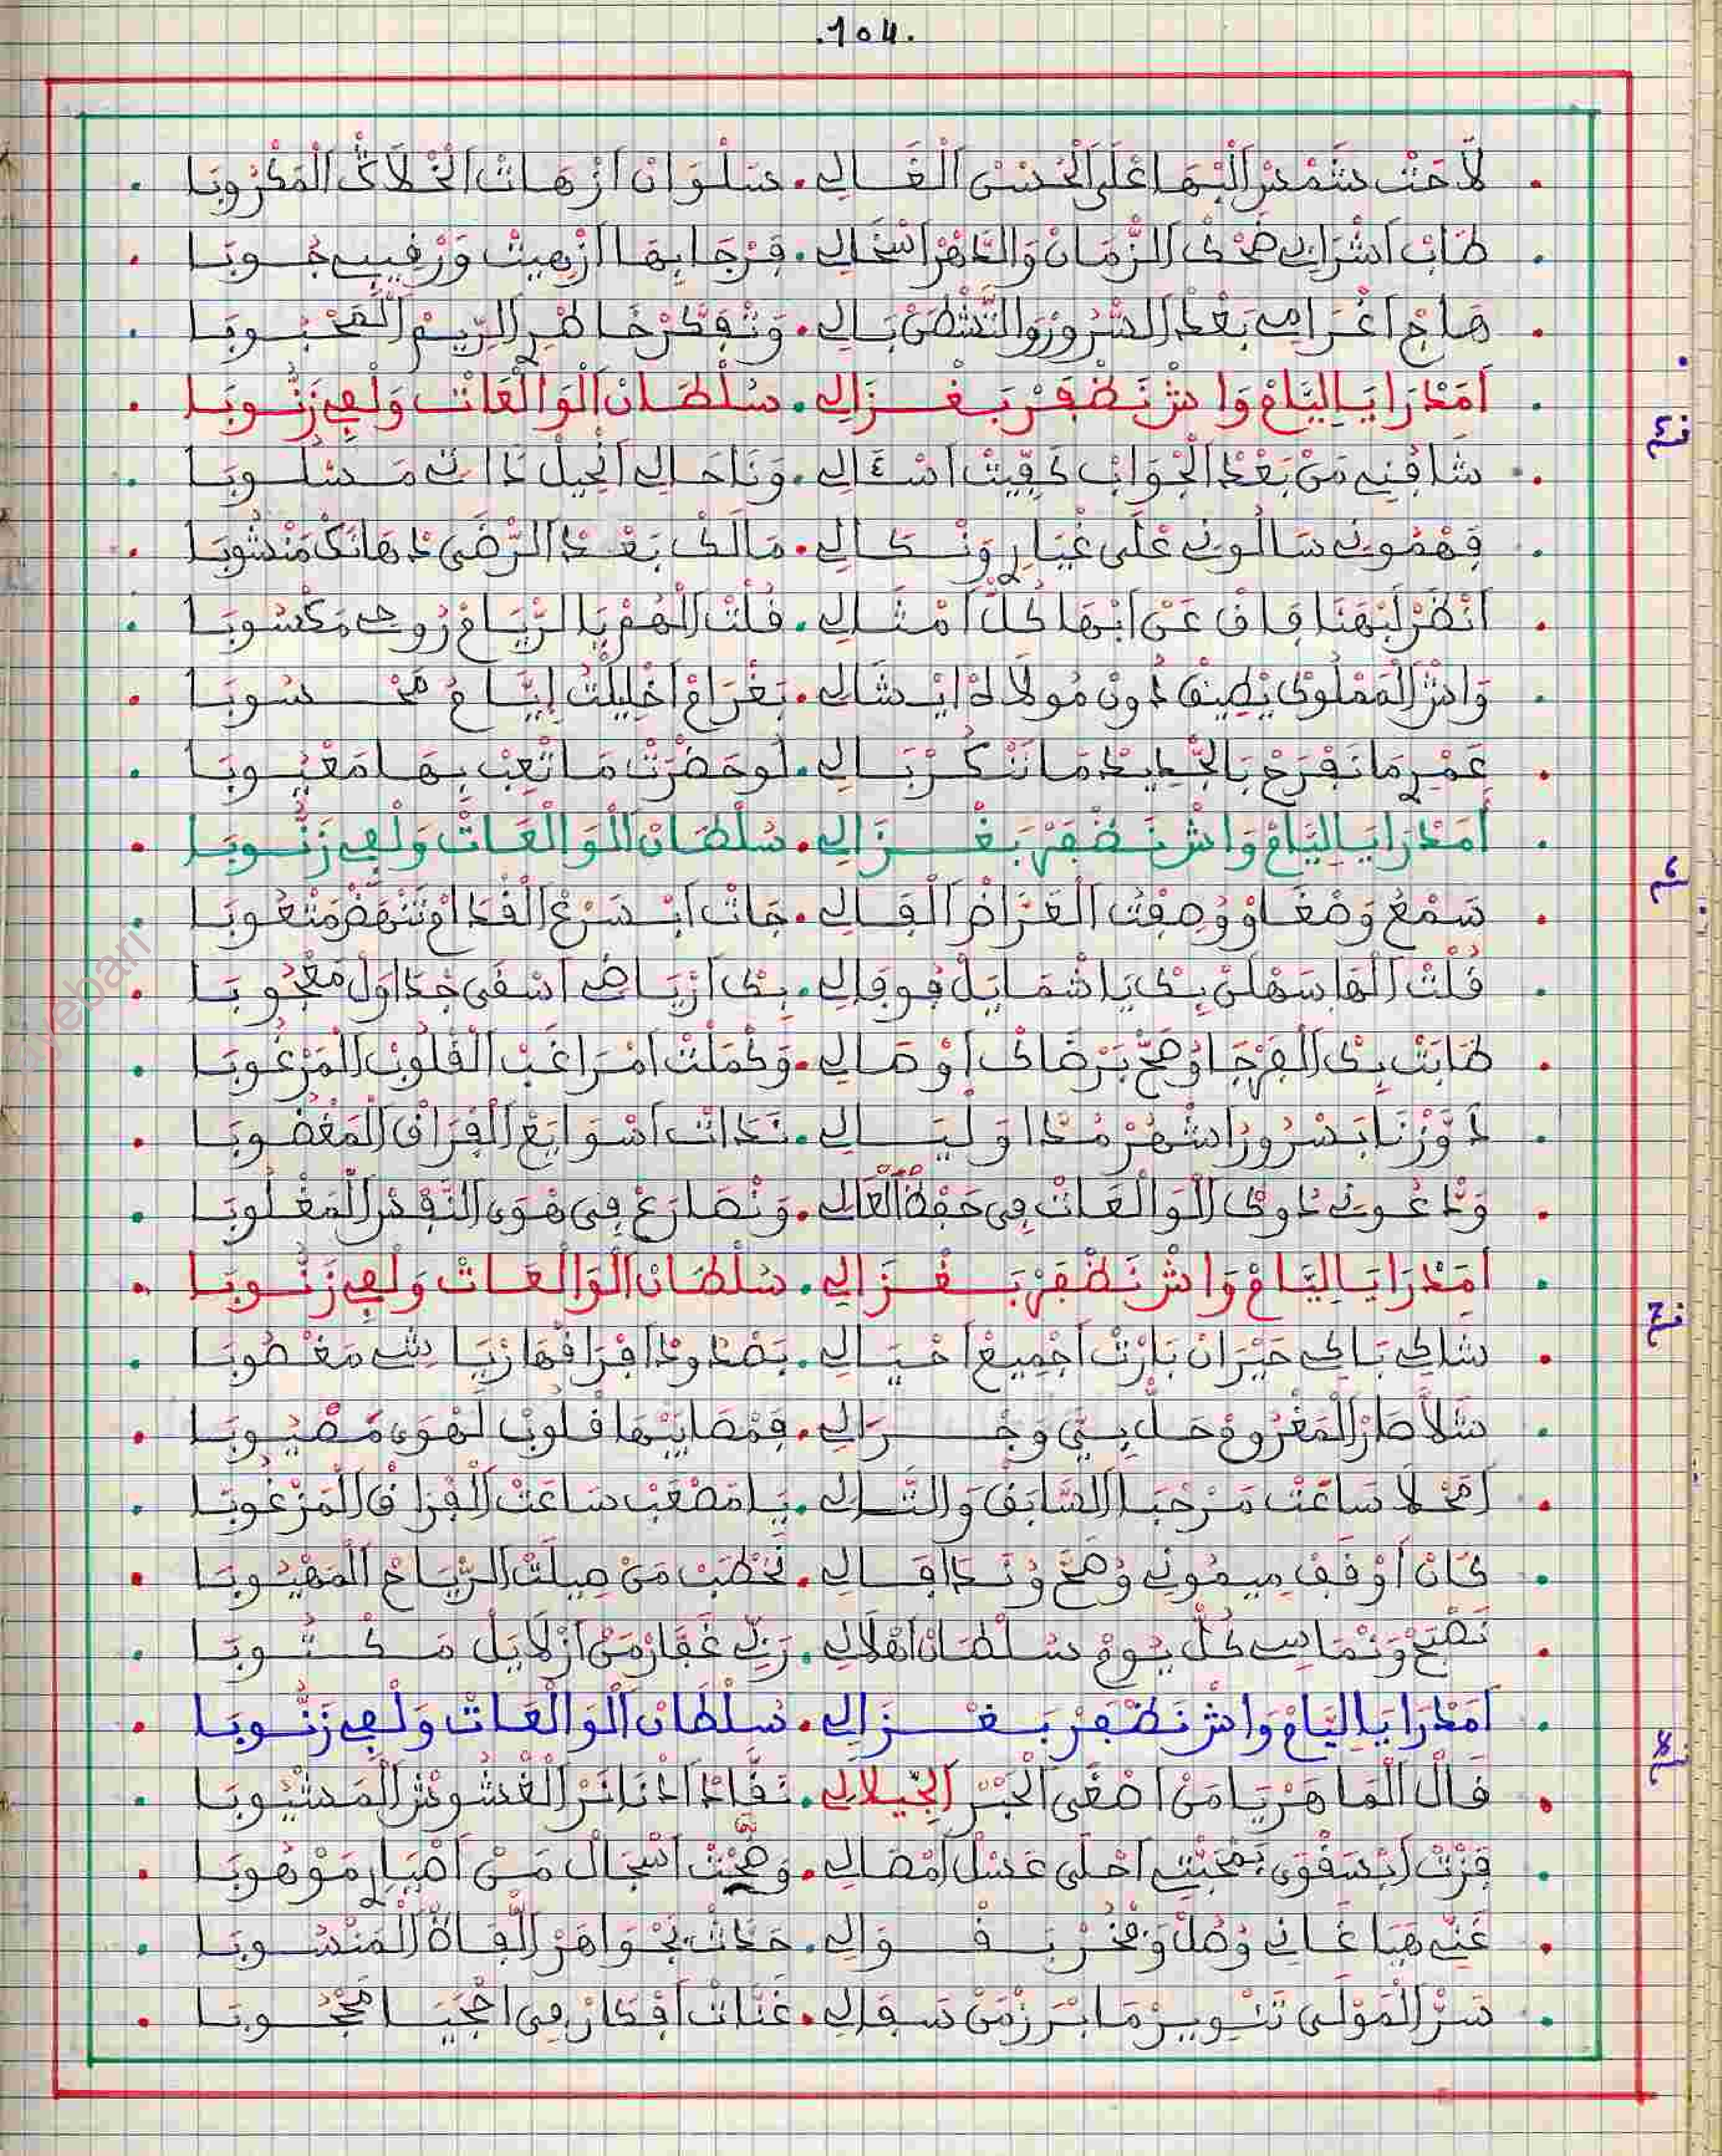 .104.
لَاحَتْ شَمْسْ الْبْهَا عْلَى الْحُسْنْ الْغَالِي . سَلْوَانْ ازْهَاتْ الْخْلَاكْ الْمَكْرُوبَا
طَابْ اشْرَابِي ضَحْكْ الزّْمَانْ وَالدّْهَرْ اسْخَالِي . فَرْجَا بِهَا ازْهِيتْ وَرْقِيبِي جُوبَا
هَاجْ اغْرَامِي بَعْدْ السّْرُورْ وَالنّْشْطَنْ بَالِي . وَتْفَكَّرْ خَاطْرِي الرِّيمْ الْمَحْبُوبَا
أَمَدْرَا يَا لِيَّامْ وَاشْ نَظْفَرْ بَغْزَالِي . سُلْطَانْ الْوَالْعَاتْ وَلْفِي زَنُّوبَا
شَافُونِي مَنْ بَعْدْ الْجْوَابْ كَفِّيتْ اسْئَالِي . وَنَا حَالِي انْحِيلْ ذَاتِي مَسْلُوبَا
فَهْمُونِي سَالُونِي عْلَى غْيَارِي وَنْكَالِي . مَالَكْ بَعْدْ الرّْضَى دْهَاتَكْ مَنْشُوبَا
انْظَرْ لَبْهَنَا فَاقْ عَنْ ابْهَا كُلّْ امْثَالِي . قُلْتْ الْهُمْ يَا الرّْيَامْ رُوحِي مَكْسُوبَا
وَاشْ الْمَمْلُوكْ يْطِيقْ دُونْ مُولَاهْ ايْشَالِي . بَغْرَامْ اخْلِيلْتْ إيَّامُ مَحْسُوبَا
عَمْرِي مَا نَفْرَحْ بَالْجْدِيدْ مَا نَنْكُرْ بَالِي . لُو حَضْرَتْ مَا تْعِبْ بِهَا مَعْيُوبَا
أَمَدْرَا يَا لِيَّامْ وَاشْ نَظْفَرْ بَغْزَالِي . سُلْطَانْ الْوَالْعَاتْ وَلْفِي زَنُّوبَا
سَمْعُ وَصْغَاوْ وُصِفْتْ الْغَرَاضْ الْقَالِي . جَاتْ ابْسَرْعْ الْقْدَامْ تَنْهَضْ مَتْعُوبَا
قُلْتْ الْهَا سَهْلَنْ بِكْ يَا شْمَايَلْ فُوقَالِي . بِكْ ارْيَاضِي اسْقَى جْدَاوَلْ مَعْجُوبَا
طَابَتْ بِكْ الْفَرْجَا وُصَحّْ بَرْضَاكْ اوْصَالِي . وَكْمْلَتْ امْرَاغَبْ الْقْلُوبْ الْمَرْغُوبَا
دَوَّزْنَا بَسْرُورْ اشْهُرْ مُدَّا وَلْيَالِي . نَدَاتْ اسْوَايَعْ الْفْرَاقْ الْمَغْضُوبَا
وَدّْعُونِي دُوكْ الْوَالْعَاتْ فِي حَفْظْ الْعَالِي . وَنْصَارَعْ فِي هْوَى النّْفْسْ الْمَغْلُوبَا
أَمَدْرَا يَا لِيَّامْ وَاشْ نَظْفَرْ بَغْزَالِي . سُلْطَانْ الْوَالْعَاتْ وَلْفِي زَنُّوبَا
شَاكِي بَاكِي حَيْرَانْ بَارْتْ اجْمِيعْ احْيَالِي . بَصْدُودْ افْرَاقْهَا ارْيَاشِي مَعْطُوبَا
شَلَّا صَارْ الْمَغْرُومْ حَلّْ بِيَّ وَجْرَالِي . فَمْصَايَبْهَا قْلُوبْ لَهْوَى مَصْيُوبَا
امْحْلَا سَاعَتْ مَرْحْبَا السَّابَقْ وَالتَّالِي . يَا مَصْعَبْ سَاعَتْ الْفْرَاقْ الْمَرْعُوبَا
كَانْ اوْقَفْ مِيمُونِي وُصَحّْ وُنَدَا فَالِي . نَخْطَبْ مَنْ صِيلْتْ الرّْيَامْ الْمَهْيُوبَا
نَصْبَحْ وَنْمَاسِي كُلّْ يُومْ سُلْطَانْ اهْلَالِي . رَبِّي غَفَّارْ مَنْ ازْلَايَلْ مَكْتُوبَا
أَمَدْرَا يَا لِيَّامْ وَاشْ نَظْفَرْ بَغْزَالِي . سُلْطَانْ الْوَالْعَاتْ وَلْفِي زَنُّوبَا
قَالْ الْمَاهَرْ يَا مَنْ اصْغَى الْحْبَرْ الْجِيلَالِي . نَقَّادْ ادْنَانَرْ الْغْشُوشْ الْمَشْيُوبَا
فَزْتْ ابْسَفْوَى بَمْحَبْتِي احْلَى عَسْلْ امْصَالِي . وَصْحَبْتْ اسْجَالْ مَنْ اصْيَارِي مَوْهُوبَا
غَنِّي هَيَا غَانِي وُصُلْ وَفْخُرْ بَقْوَالِي . خَذْتْ بَجْوَاهَرْ اللّْفَاظْ الْمَنْسُوبَا
سَرّْ الْمَوْلَى تَنْوِيرْ مَا بْرَزْ مَنْ سَفَالِي . غَنَّاتْ افْكَارْ فِي احْجَيَا مَحْجُوبَا